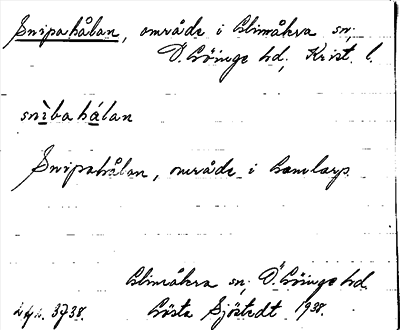 Snipahålan, område i Glimåkra sn;
Ö. Göinge hd, Krist. l.
snìbahálan
Snipahålan, område i
Glimåkra sn; Ö. Göinge hd.
3738. Gösta Sjöstedt 1938.